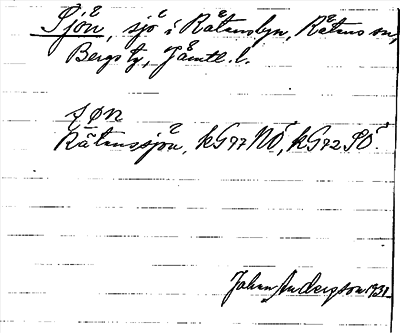 Sjön, sjö i Rätansbyn, Rätans sn,
Bergs tg, Jämtl. l.
ʃøn
Rätanssjön, kG 77 NÖ, kG 72 SÖ.
Johan Anderzson 1931